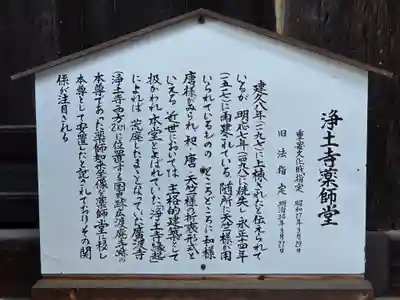 浄土寺薬師堂
重要文化財指定 昭和27年3月29日
旧法指定 明治34年3月27日
建久八年(一一九七)に上棟されたと伝えられて
いるが 明応七年(一四九八)に焼失し 永正十四年
(一五一七)に再建されている 随所に天竺様が用
いられているものの ところどころに和様
唐様がみられ 和・唐・天竺様の折衷形式と
いえる 近世においては 主格的建築として
扱かわれ 本堂とよばれていた「浄土寺縁起」
によれば 荒廃したままとなっていた広渡寺
(浄土寺西方2㎞に位置する国史跡広渡廃寺跡)の
本尊であった薬師如来坐像を薬師堂に移し
本尊として安置したと記されておりその関
係が注目される